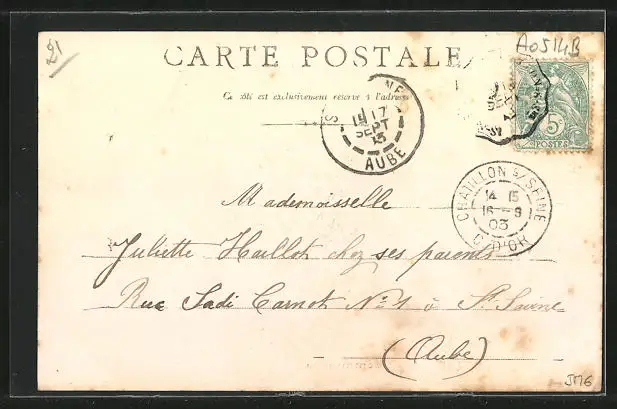 21
A0514B
CARTE POSTALE
Ce côté est exclusivement réservé à l'adresse
17
SEPT
AUBE
5c
POSTES
CHATILLON S/ SEINE
14 15
16 - 9
03
C. D'OR
Mademoisselle
Juliette Haillot chez ses parents
Rue Sadi Carnot No 1 à St. Savine
(Aube)
JMG